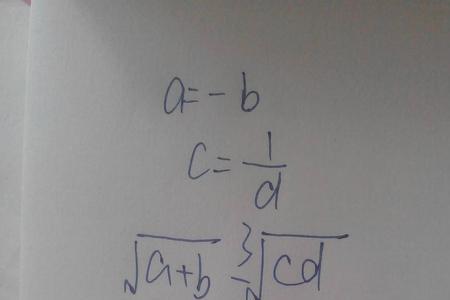 a=-b
c=1/d
√(a+b) - ∛(cd)